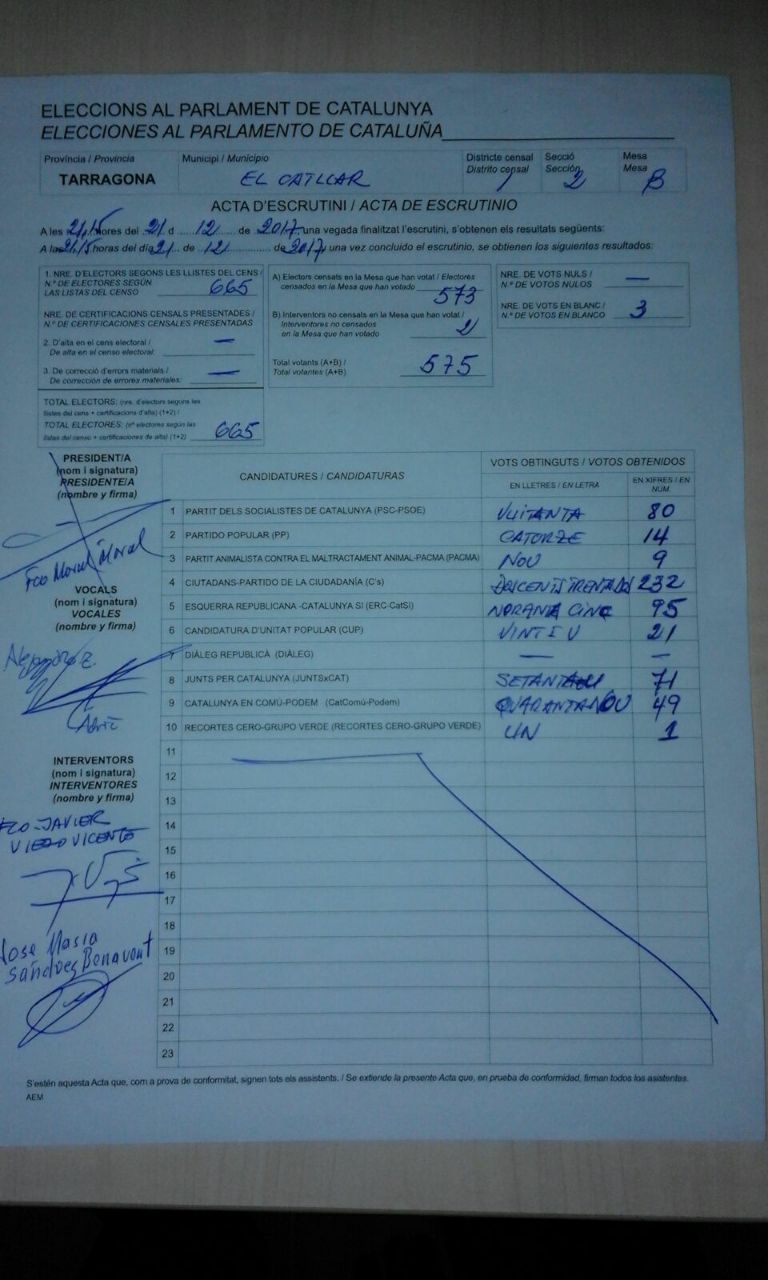 ELECCIONS AL PARLAMENT DE CATALUNYA
ELECCIONES AL PARLAMENTO DE CATALUÑA
Província / Provincia Municipi / Municipio Districte censal Secció Mesa
Distrito censal Sección Mesa
TARRAGONA EL CATLLAR 1 2 B
ACTA D'ESCRUTINI / ACTA DE ESCRUTINIO
A les 21,15 hores del 21 d 12 de 2017, una vegada finalitzat l'escrutini, s'obtenen els resultats següents:
A las 21,15 horas del día 21 de 12 de 2017, una vez concluido el escrutinio, se obtienen los siguientes resultados:
1. NRE. D'ELECTORS SEGONS LES LLISTES DEL CENS /
N.º DE ELECTORES SEGÚN
LAS LISTAS DEL CENSO 665
NRE. DE CERTIFICACIONS CENSALS PRESENTADES /
N.º DE CERTIFICACIONES CENSALES PRESENTADAS
2. D'alta en el cens electoral / —
De alta en el censo electoral:
3. De correcció d'errors materials / —
De corrección de errores materiales:
TOTAL ELECTORS: (nre. d'electors segons les
llistes del cens + certificacions d'alta) (1+2) /
TOTAL ELECTORES: (nº electores según las
listas del censo + certificaciones de alta) (1+2) 665
A) Electors censats en la Mesa que han votat / Electores
censados en la Mesa que han votado 573
B) Interventors no censats en la Mesa que han votat /
Interventores no censados
en la Mesa que han votado 2
Total votants (A+B) /
Total votantes (A+B) 575
NRE. DE VOTS NULS /
N.º DE VOTOS NULOS —
NRE. DE VOTS EN BLANC /
N.º DE VOTOS EN BLANCO 3
PRESIDENT/A
(nom i signatura)
PRESIDENTE/A
(nombre y firma)
Fco Moral Moral
VOCALS
(nom i signatura)
VOCALES
(nombre y firma)
INTERVENTORS
(nom i signatura)
INTERVENTORES
(nombre y firma)
FCO-JAVIER
VIEZO VICENTE
Jose Maria
Sánchez Benavent
CANDIDATURES / CANDIDATURAS VOTS OBTINGUTS / VOTOS OBTENIDOS
EN LLETRES / EN LETRA EN XIFRES / EN NÚM.
1 PARTIT DELS SOCIALISTES DE CATALUNYA (PSC-PSOE) VUITANTA 80
2 PARTIDO POPULAR (PP) CATORZE 14
3 PARTIT ANIMALISTA CONTRA EL MALTRACTAMENT ANIMAL-PACMA (PACMA) NOU 9
4 CIUTADANS-PARTIDO DE LA CIUDADANÍA (C's) 232
5 ESQUERRA REPUBLICANA -CATALUNYA SÍ (ERC-CatSí) NORANTA CINC 95
6 CANDIDATURA D'UNITAT POPULAR (CUP) VINT I U 21
7 DIÀLEG REPUBLICÀ (DIÀLEG) — —
8 JUNTS PER CATALUNYA (JUNTSxCAT) SETANTA U 71
9 CATALUNYA EN COMÚ-PODEM (CatComú-Podem) QUARANTA NOU 49
10 RECORTES CERO-GRUPO VERDE (RECORTES CERO-GRUPO VERDE) UN 1
11
12
13
14
15
16
17
18
19
20
21
22
23
S'estén aquesta Acta que, com a prova de conformitat, signen tots els assistents. / Se extiende la presente Acta que, en prueba de conformidad, firman todos los asistentes.
AEM